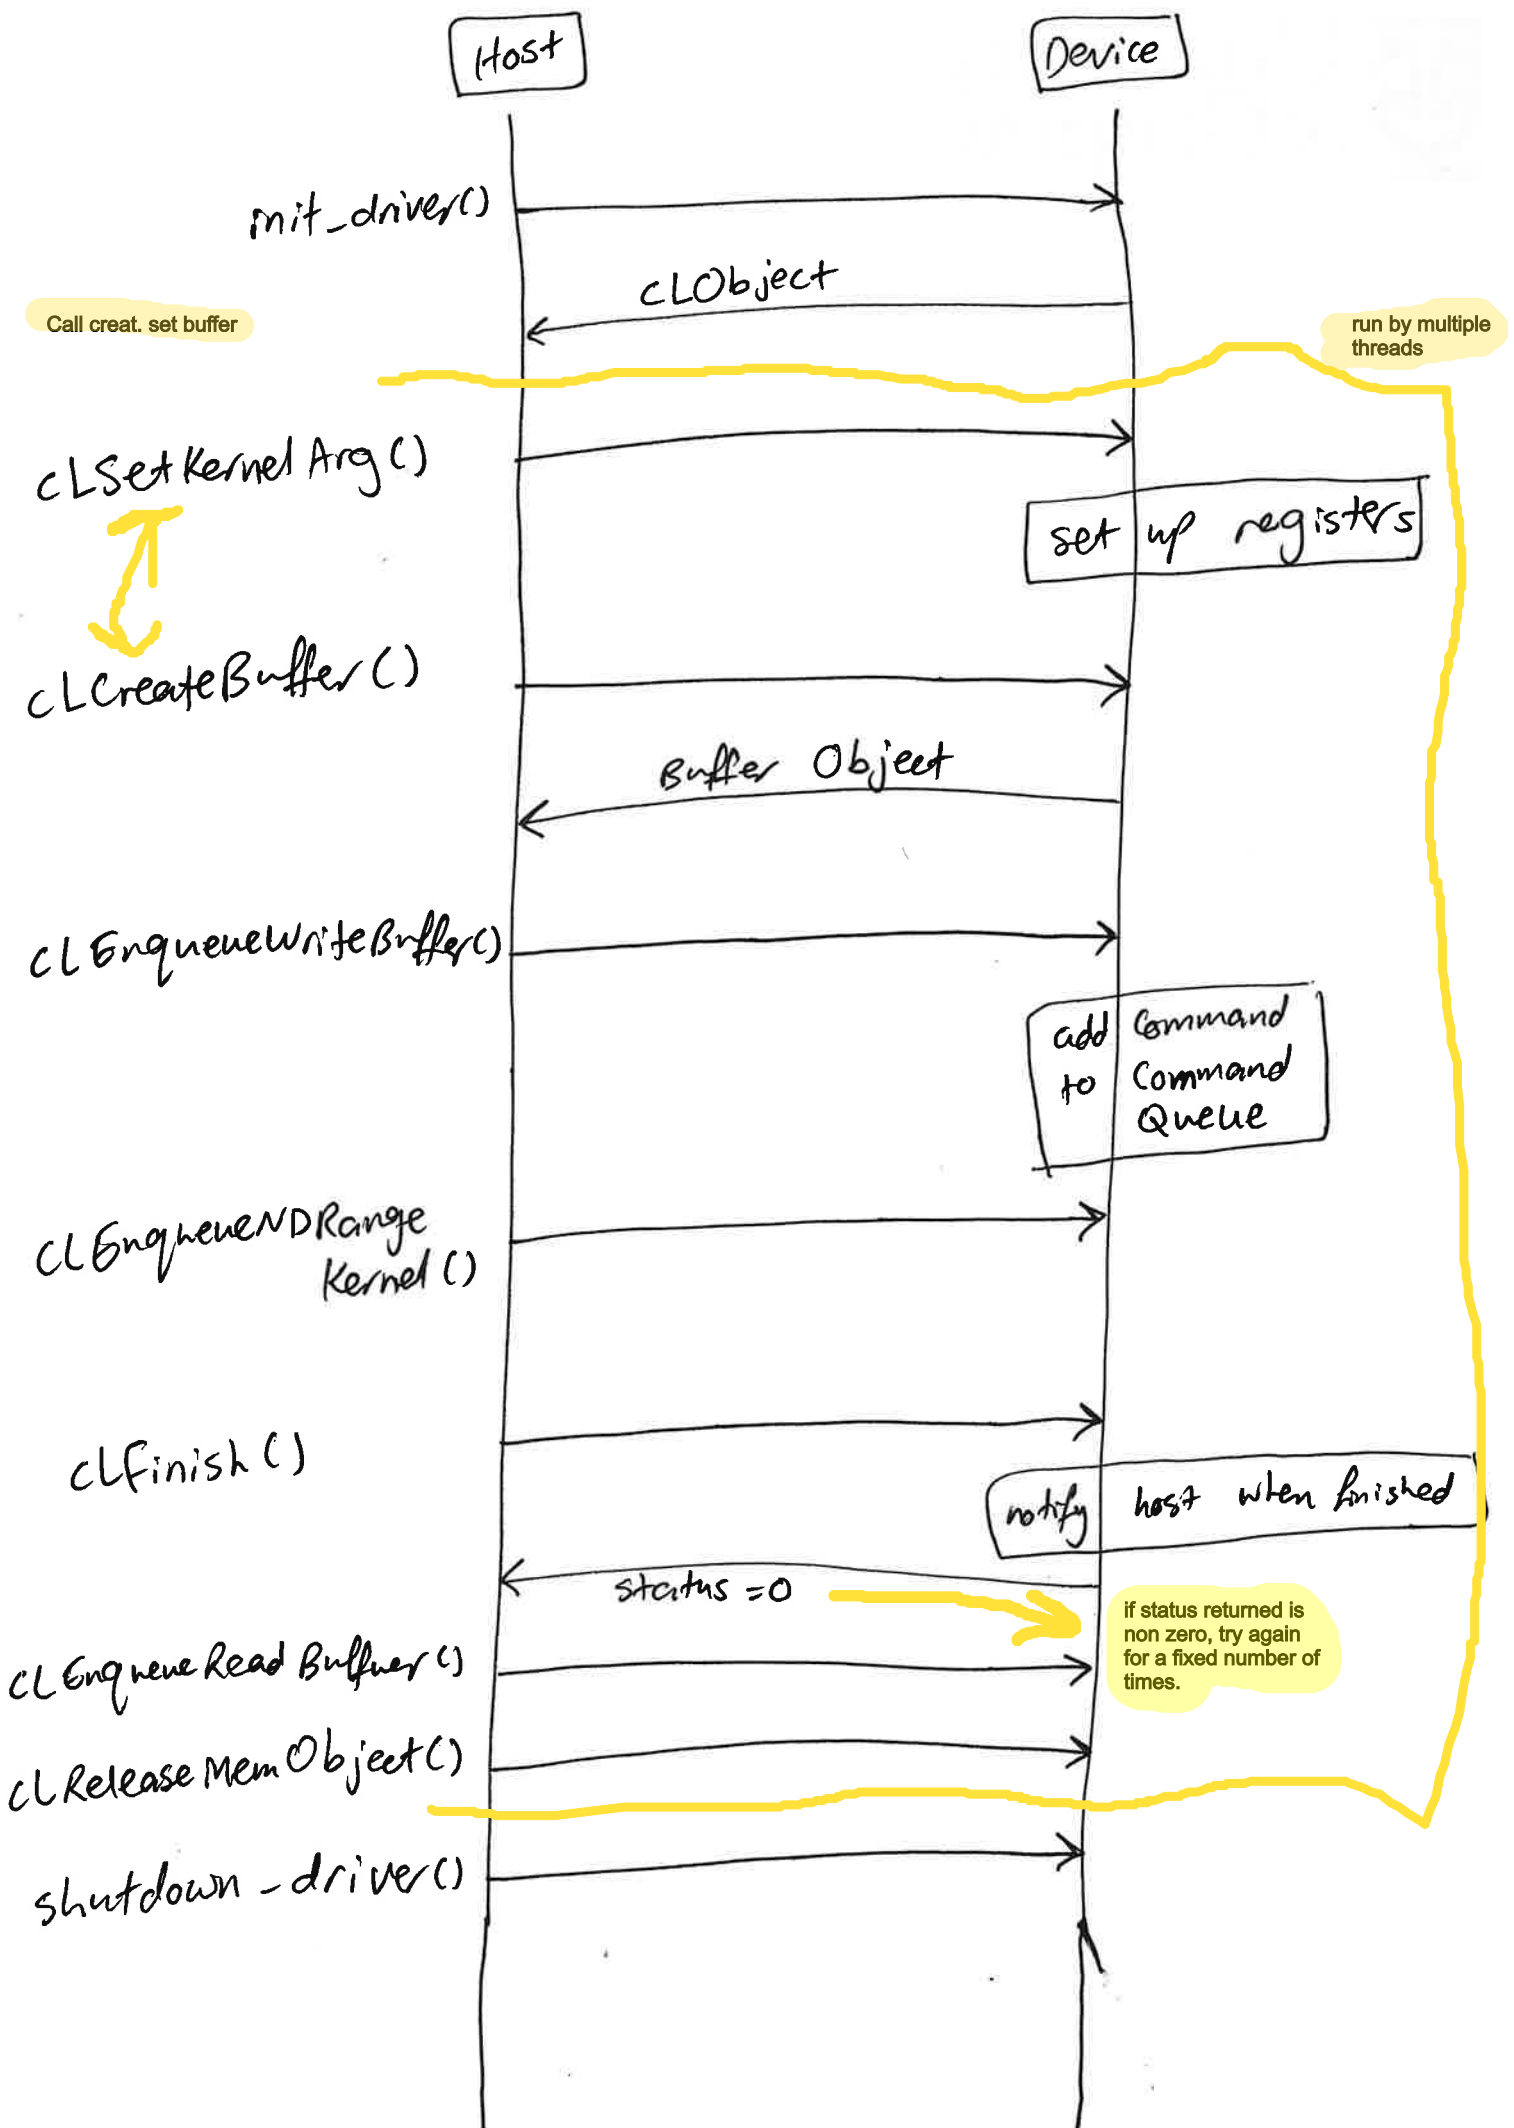 Host
Device
init_driver()
cLObject
Call creat. set buffer
run by multiple
threads
cLSetKernelArg()
set up registers
cLCreateBuffer()
Buffer Object
cLEnqueueWriteBuffer()
add Command
to Command
Queue
cLEnqueueNDRange
Kernel()
cLFinish()
notify host when finished
status=0
if status returned is
non zero, try again
for a fixed number of
times.
cLEnqueueReadBuffuer()
cLReleaseMemObject()
shutdown_driver()